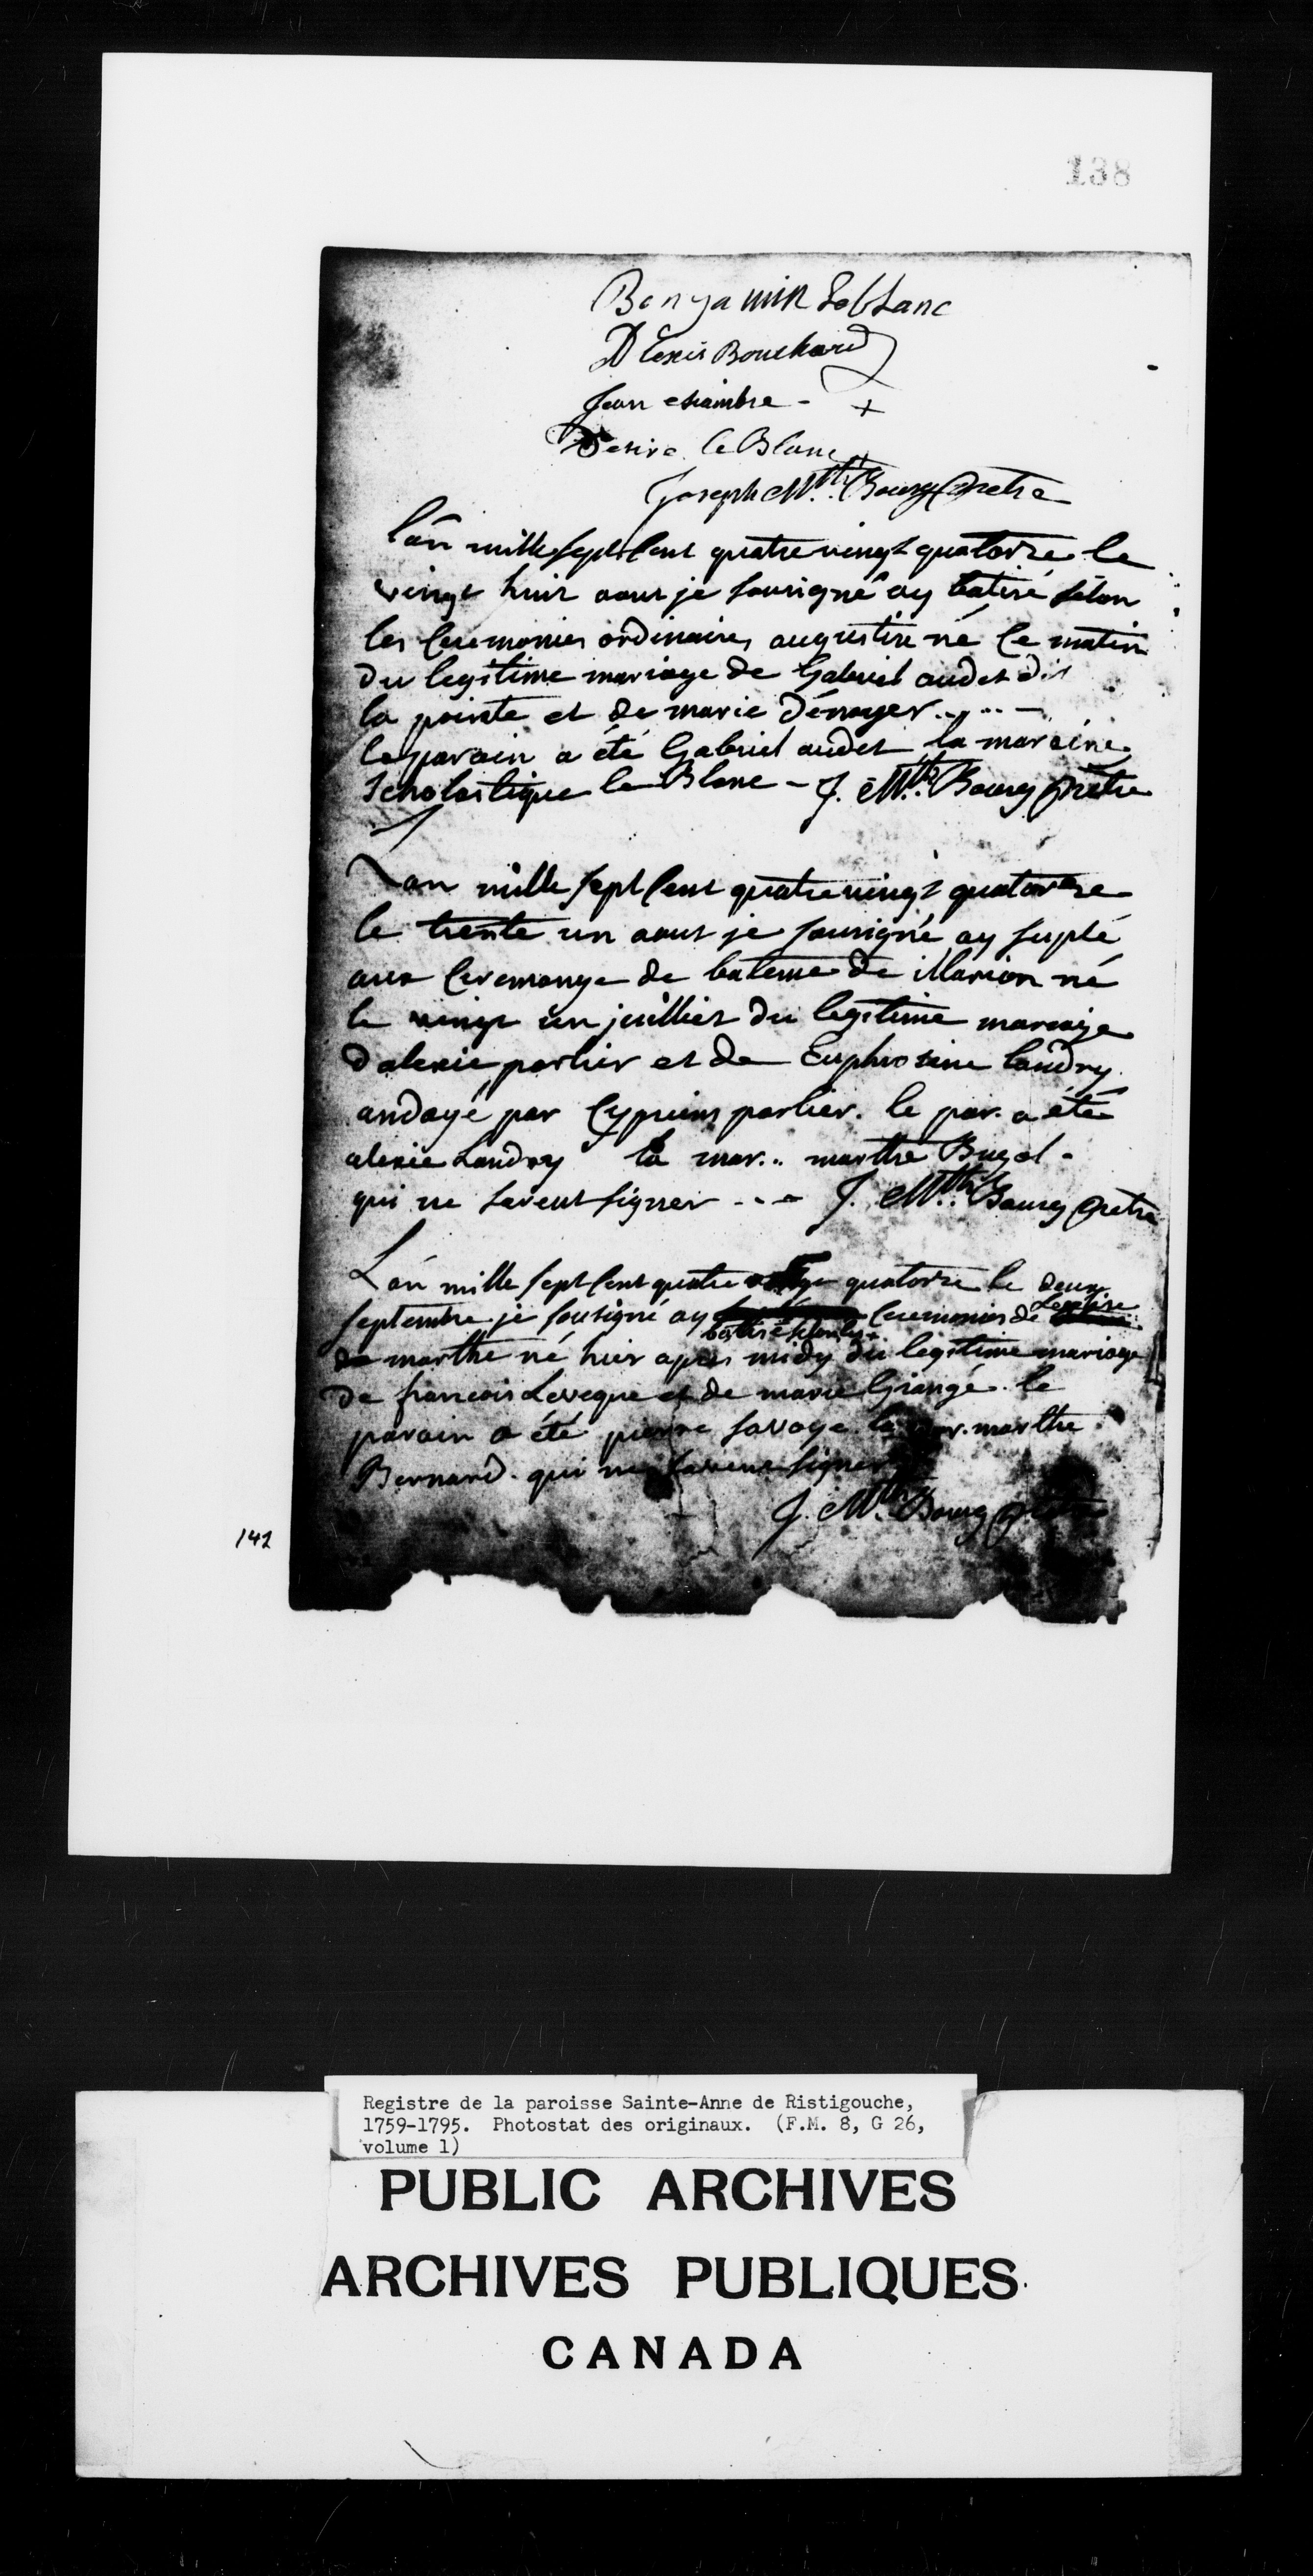 138
Benjamin Leblanc
Alexis Bouchard
Jean chiambre - +
Desire le Blanc +
Joseph Mth. Bourg Pretre
L'an mille sept Cent quatre vingt quatorze le
vingt huit aout je sousigné ay batisé selon
les Ceremonies ordinaires augustin né Ce matin
du legitime mariage de Gabriel audet dit
la pointe et de marie Dénoyer
le parain a été Gabriel audet la maraine
Scholastique le Blanc - J. Mth. Bourg Prêtre
L'an mille sept Cent quatre vingt quatorze
le trente un aout je sousigné ay suplé
aux Ceremonye de bateme de illarion né
le vingt un juillier du legitime mariage
d'alexie porlier et de Euphrosine landry
andoyé par Cyprien porlier. le par. a été
alexie Landry la mar.. marthe Bugol -
qui ne savent signer - - - J. Mth. Bourg Pretre
L'an mille sept Cent quatre vingt quatorze le deux
septembre je sousigné ay batisé selon les Ceremonies de L'eglise
de marthe né hier apres midy du legitime mariage
de francois Leveque et de marie Giangé. le
parain a été pierre savoye la mar. marthe
Bernard. qui ne savent signer
J. Mth. Bourg pretre
142
Registre de la paroisse Sainte-Anne de Ristigouche,
1759-1795. Photostat des originaux. (F.M. 8, G 26,
volume 1)
PUBLIC ARCHIVES
ARCHIVES PUBLIQUES
CANADA